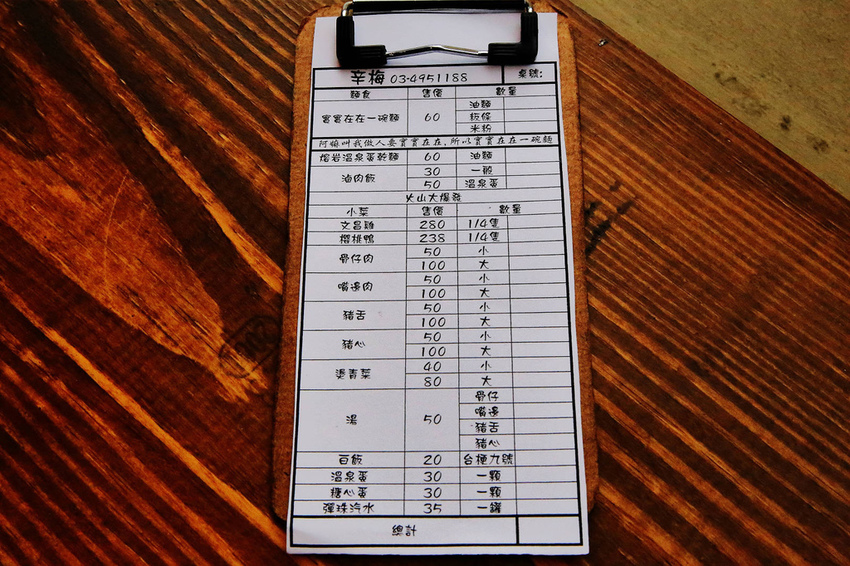 辛梅 03-4951188 桌號:
麵食 售價 數量
實實在在一碗麵 60 油麵
粄條
米粉
阿嬤叫我做人要實實在在,所以實實在在一碗麵
熔岩溫泉蛋乾麵 60 油麵
滷肉飯 30 一般
50 溫泉蛋
火山大爆發
小菜 售價 數量
文昌雞 280 1/4隻
櫻桃鴨 238 1/4隻
骨仔肉 50 小
100 大
嘴邊肉 50 小
100 大
豬舌 50 小
100 大
豬心 50 小
100 大
燙青菜 40 小
80 大
湯 50 骨仔
嘴邊
豬舌
豬心
白飯 20 台梗九號
溫泉蛋 30 一顆
糖心蛋 30 一顆
彈珠汽水 35 一罐
總計